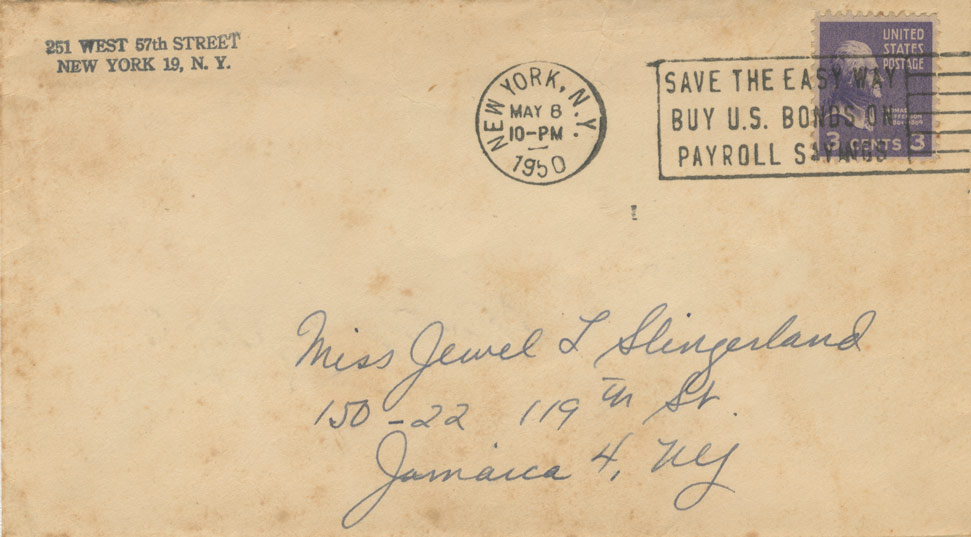 251 WEST 57th STREET
NEW YORK 19, N. Y.
NEW YORK, N.Y.
MAY 8
10-PM
1950
SAVE THE EASY WAY
BUY U.S. BONDS ON
PAYROLL SAVINGS
UNITED
STATES
POSTAGE
3 CENTS 3
Miss Jewel L Slingerland
150-22 119th St.
Jamaica 4, NY